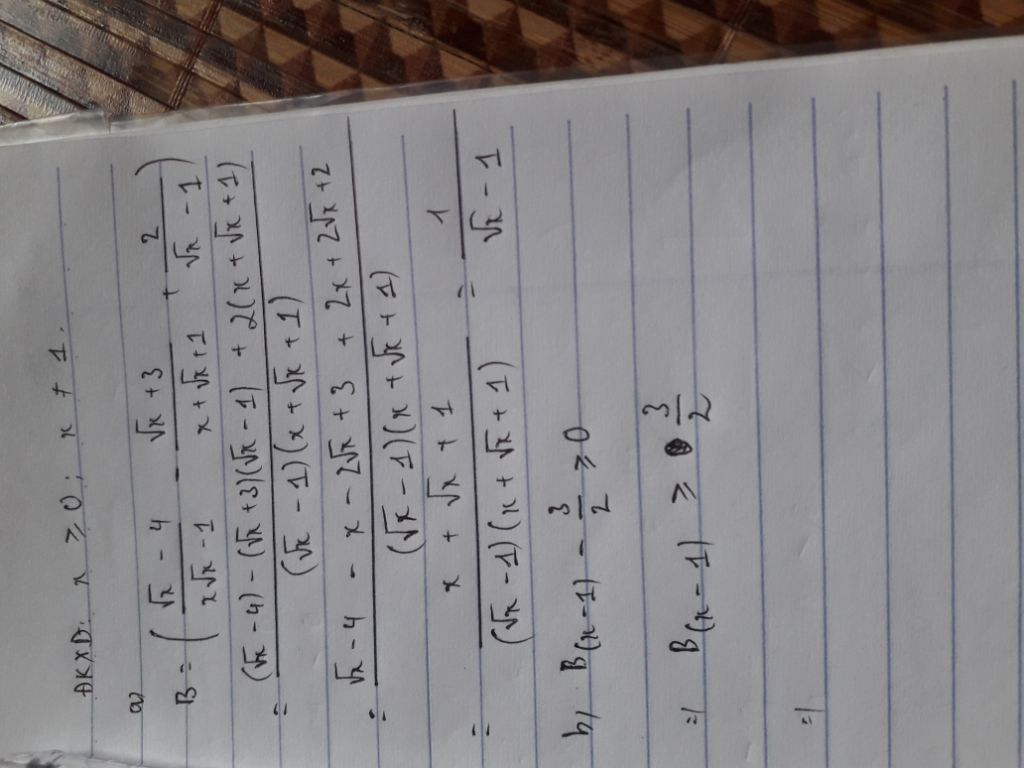 ĐKXĐ: x ≥ 0; x ≠ 1.
a)
B = ( (√x - 4)/(x√x - 1) - (√x + 3)/(x + √x + 1) + 2/(√x - 1) )
= ((√x - 4) - (√x + 3)(√x - 1) + 2(x + √x + 1))/((√x - 1)(x + √x + 1))
= (√x - 4 - x - 2√x + 3 + 2x + 2√x + 2)/((√x - 1)(x + √x + 1))
= (x + √x + 1)/((√x - 1)(x + √x + 1)) = 1/(√x - 1)
b) B(x - 1) - 3/2 ≥ 0
=) B(x - 1) ≥ 3/2
=)